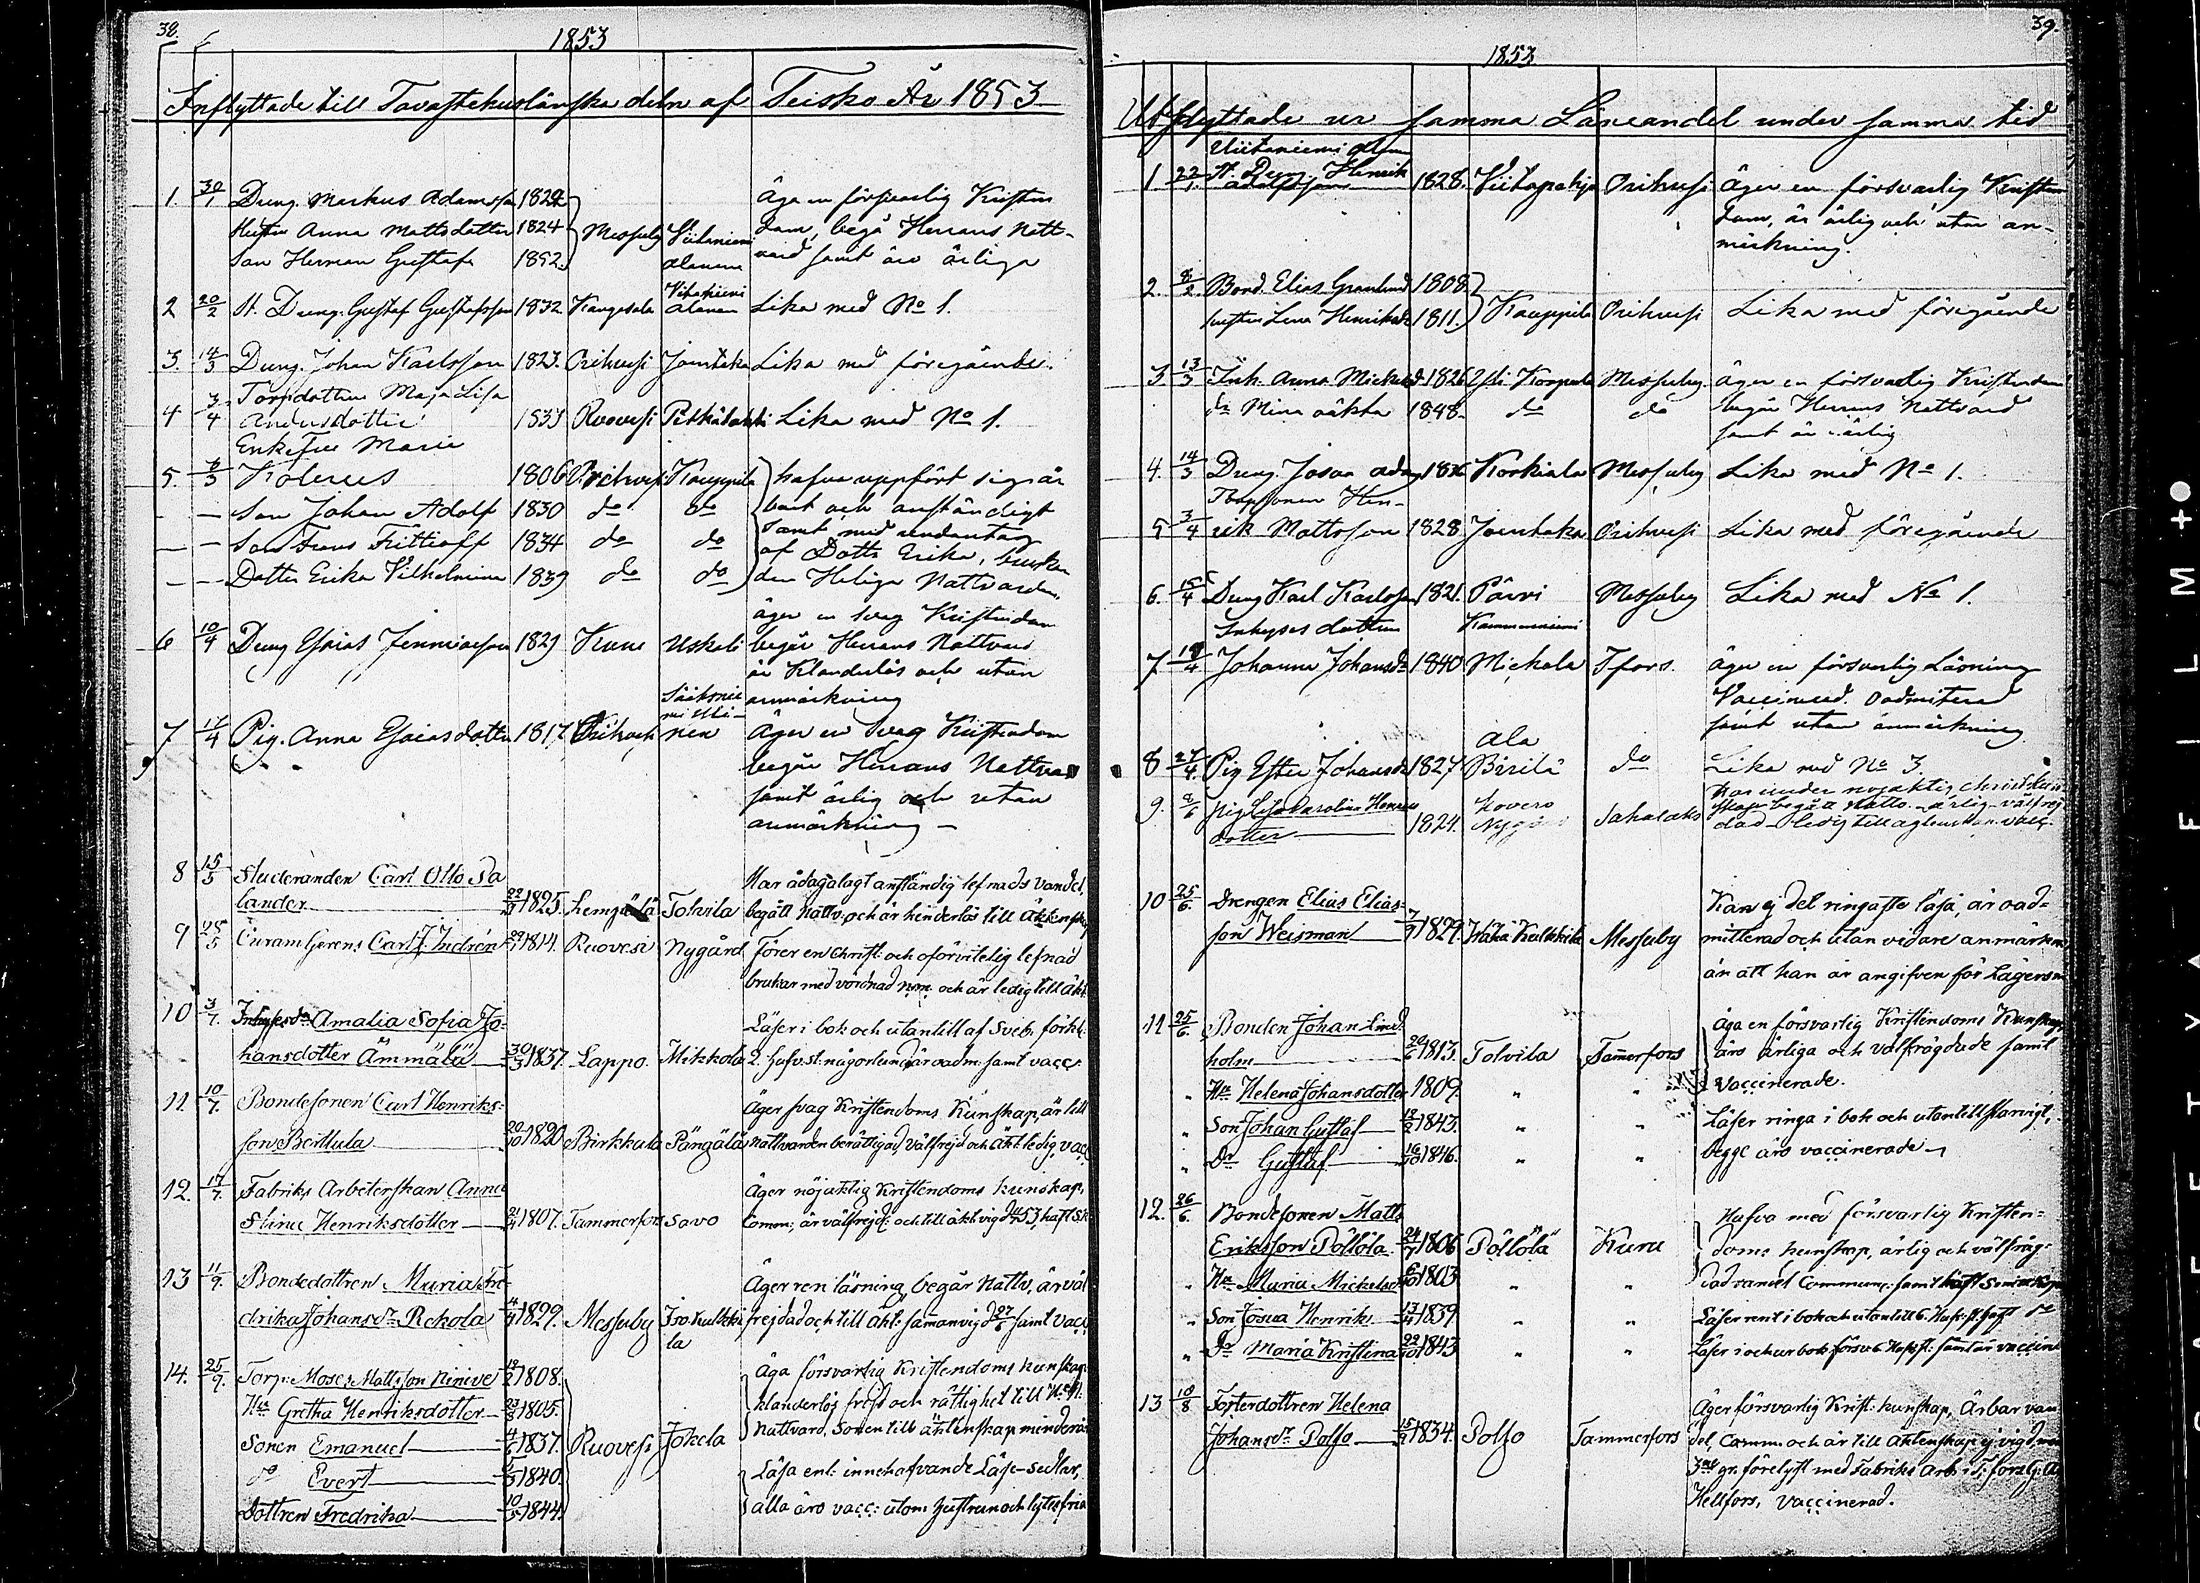 38.
1853
Inflyttade till Tavastehuslänska deln af Teisko År 1853
1 30/1 Dreng. Markus Adamsson 1824 Äga en försvarlig Kristen
Hustru Anna Mattsdotter 1824 Messuby Viitaniemi dom, begå Herrans Natt-
Son Herman Gustaf 1852. Alanen vard samt äro ärliga
2 20/2 St. Dreng. Gustaf Gustafsson 1832 Kangasala Alanen Lika med No 1.
3. 14/3 Dreng. Johan Karlsson 1823. Orihvesi Jamtaka Lika med föregående.
Torpdottren Maja Lisa
4 3/4 Andersdotter 1833 Ruovesi Pitkälahti Lika med No 1.
Enkefru Maria
5. Kolenus 1806 Orihvesi Kauppila hafva uppfört sig är
– – Son Johan Adolf 1830 do do bart och anständigt
– – Son Frans Fritioff 1834 do do samt med undantag
af Dottr Erika,
– – Dotter Erika Vilhelmina 1839 do do den Heliga Nattvarden
äger en svag Kristendom
6 10/4 Dreng Esaias Jeremiasson 1829 Kuru Uskali begår Herrans Nattvard
är Klanderlös och utan
anmärkning
7 17/4 Pig. Anna Esaiasdotter 1817 Orihvesi nen Äger en svag Kristendom
begår Herrans Nattvard
samt ärlig och utan
anmärkning –
8 15/5 Studeranden Carl Otto Sa Har ådagalagt anständig lefnads vandel,
lander 1825. Lempälä Tolvila begått Nattv: och är hinderlös till Äktenskap
9 25/5 Carl J. Indrén 1814. Ruovesi Nygård Förer en Christ: och oförvitelig lefnad
brukar med vördnad n.m. och är ledig till äkt
10 3/7. Inhysesdr Amalia Sofia Jo- Läser i bok och utantill af Sveb. förkl.
hansdotter Ämmälä 30/3 1837. Lappo. Mikkola 2. hufv.st: någorlunda är oadm. samt vacc.
11 10/7. Bondesonen Carl Henriks- Äger svag Kristendoms Kunskap, är till
son Berttula 20/10 1820 Birkkala Pängälä nattvarden berättigad, välfrejd och äkt. ledig, vacc
12. 17/7. Fabriks Arbeterskan Anna Äger nöjaktig Kristendoms kunskap,
Stina Henriksdotter 21/4 1807. Tammerfors Savo Comm:, är välfrejd: och till äkt. vigd
13 11/9. Bondedottren Maria Fre- Äger ren läsning, begår Nattv, är väl
drika Johansdr Rekola 4/4 1829. Messuby Iso Kulkki frejdad och till äkt: sammanvigd samt vacc
la
14. 25/9. Torp: Moses Mattsson Ninive 1808. Äga försvarlig Kristendoms kunskap
Hu Gretha Henriksdotter 23/3 1805. klanderlös frejd och rättighet till H.
Sonen Emanuel 1837. Ruovesi Jokela Nattvard, Sonen till äktenskap minderå
do Evert 1840. Läsa enl: innehafvande Läse-sedlar,
Dottren Fredrika 10/3 1844. alla äro vacc: utom hustrun och lytesfria
39.
1853
Utflyttade ur samma Länsandel under samma tid
Viitaniemi Alanen
1 22/1. St. Dreng. Henrik 1828. Viitapohja Orihvesi Äger en försvarlig Kristen
Adolfsson dom, är ärlig och utan an-
märkning.
2. 8/2. Bond. Elias Granlund 1808
hustru Lena Henriksdr 1811. Kauppila Orihvesi Lika med föregående
3 13/3 Inh. Anna Mickelsd. 1826 Korpula Messuby. äger en försvarlig Kristendom
dr Mina oäkta 1848. do do begår Herrans Nattvard
samt är ärlig
4. 14/3 Dreng. Josua Korkiala Messuby Lika med No 1.
Torpsonen Hen-
5 3/4 rik Mattsson 1828 Jamtaka Orihvesi Lika med föregående
6. 15/4 Dreng Karl Karlsson 1821. Pärvi Messuby Lika med No 1.
Inhyses dottren
7 19/4 Johanna Johansdr 1840 Mickola Tfors. äger en försvarlig Läsning
Vaccinerad. Oadmitterad
samt utan anmärkning
Ala
8 27/4. Pig Ester Johansdr 1827 Pirilä do Lika med No 3.
9. 8/6 Pig Lisa Carolina Henriks Kovero
dotter 1824. Nygård Sahalaks
10 25/6. Drengen Elias Elias- Kan ej det ringaste läsa, är oad-
son Weisman 7/7 1829. Wähä Kulkkila Messuby mitterad och utan vidare anmärkn
än att han är angifven för Lägersm
11 25/6. Bonden Johan Lind- Äga en försvarlig Kristendoms Kunskap,
holm 20/6 1813. Tolvila Tammerfors äro ärliga och välfrägdade samt
Hu Helena Johansdotter 1809. " " vaccinerade.
" Son Johan Gustaf 12/2 1843. " " Läser ringa i bok och utantill
" Dr Gustaf 16/10 1846. " " begge äro vaccinerade
12. 26/6. Bondesonen Matts Hafva med försvarlig Kristen-
Eriksson Pöllölä 24/7 1806 Pöllölä Kuru doms kunskap, ärlig och välfräg-
" Hu Maria Mickelsdr 6/10 1803 " " dad vandel Commun: samt haft
" Son Josua Henrik 13/4 1839. " " Läser rent i bok och utantill 6. Huf:st.
" Dr Maria Kristina 22/10 1843 " " Läser i och ur bok försv. 6. Huf.st: samt är vaccin
13 10/8 Fosterdottren Helena Äger försvarlig Krist: kunskap, Ärbar van
Johansdr Polso 15/11 1834. Polso Tammerfors del, Comm: och är till äktenskap ej vigd, men
3ne gr. förelyst med Fabriks Arb: i T:fors G:A.
Hellfors, vaccinerad.